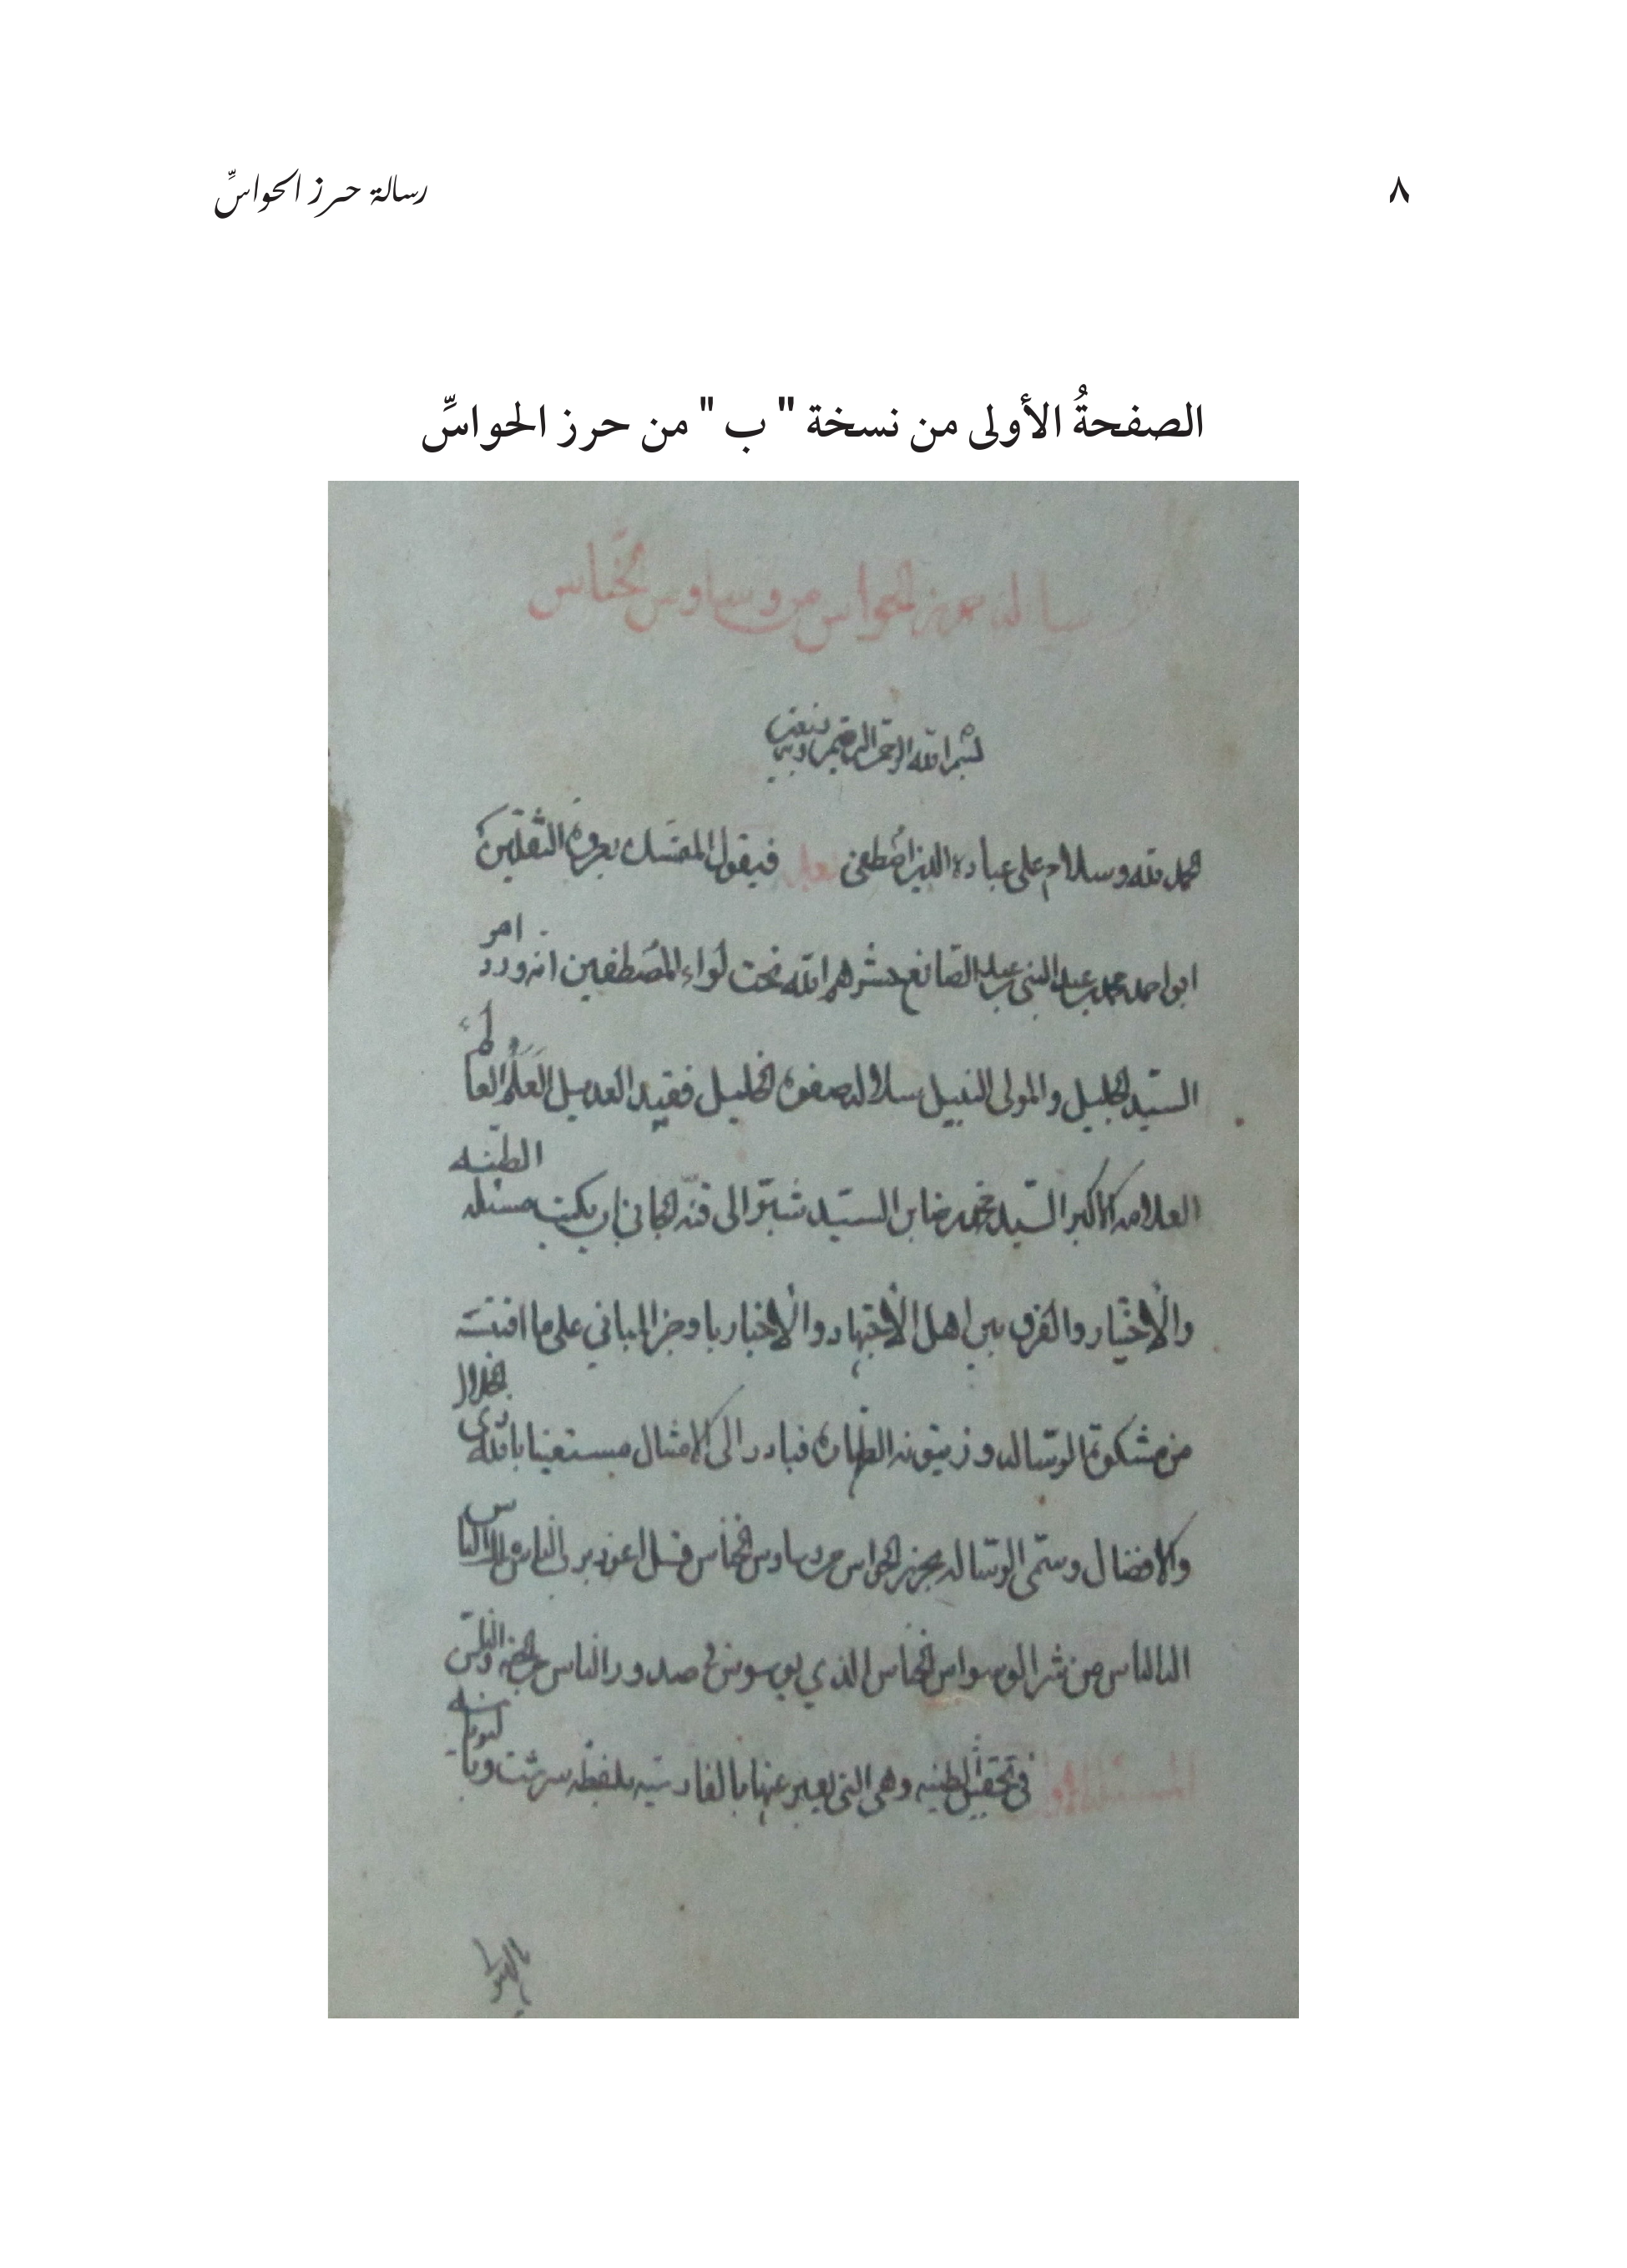 رسالة حرز الحواسِّ
٨
الصفحةُ الأولى من نسخة " ب " من حرز الحواسِّ
رسالة حرز الحواس من وساوس الخناس
بسم الله الرحمن الرحيم وبه نستعين
حمد لله وسلام على عباده الذين اصطفى فيقول المتمسك بعروة الثقلين
ابو احمد محمد بن عبد النبي بن عبد الصانع حشرهم الله تحت لواء المصطفين انه ورد امر
السيد الجليل والمولى النبيل سلالة صفوة الخليل فقيد العديل العلم العالم
العلامة الاكبر السيد محمد رضا بن السيد شبر الى قنه الجاني ان يكتب مسئلة الطينه
والاختيار والفرق بين اهل الاجتهاد والاخبار باوجز المباني على ما اقتبسته
من مشكوة الرسالة وزيتونة الطهارة فبادر الى الامتثال مستعينا بالله ذي الجلال
والافضال وسمى الرسالة بحرز الحواس من وساوس الخناس قل اعوذ برب الناس ملك الناس
اله الناس من شر الوسواس الخناس الذي يوسوس في صدور الناس من الجنة والناس
في تحقيق الطينه وهي التي يعبر عنها بالفارسية بلفظة سرشت